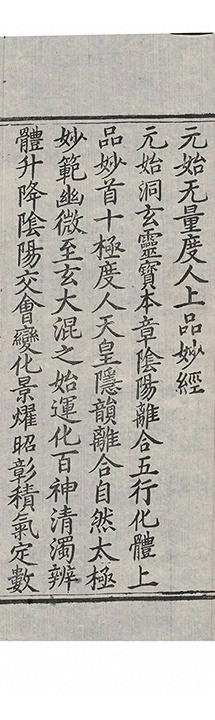 元始无量度人上品妙經
元始洞玄靈寶本章陰陽離合五行化體上
品妙首十極度人天皇隱韻離合自然太極
妙範幽微至玄大混之始運化百神清濁辨
體升降陰陽交會變化景耀昭彰積氣定數